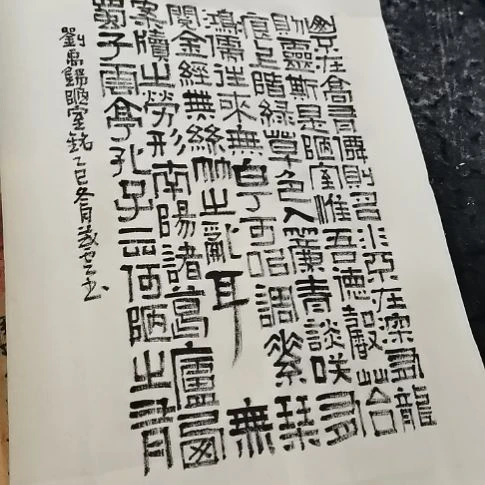 山不在高有僊則名水不在深有龍
則靈斯是陋室惟吾德馨苔
痕上階綠草色入簾青談咲有
鴻儒往來無白丁可以調素琴
閱金經無絲竹之亂耳無
案牘之勞形南陽諸葛廬西
蜀子雲亭孔子云何陋之有
劉禹錫陋室銘乙巳冬月書